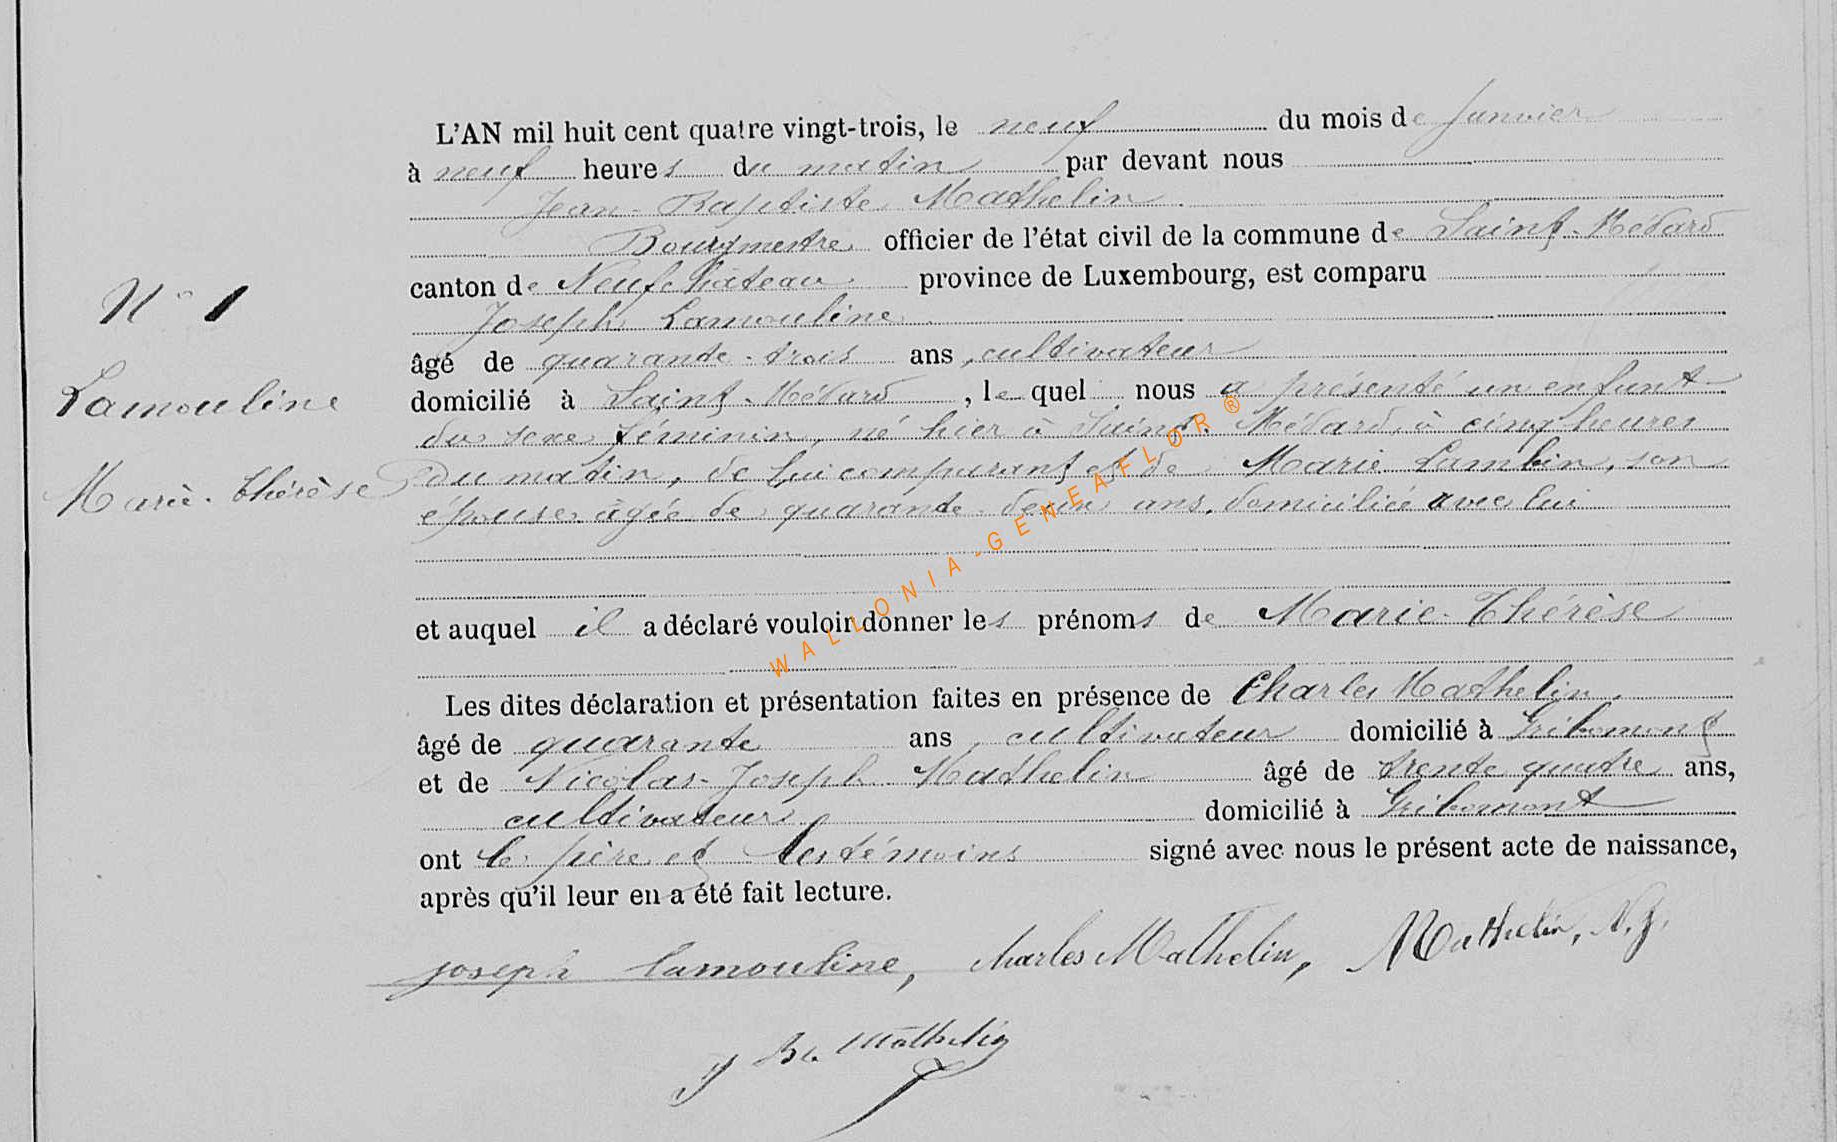 L'AN mil huit cent quatre vingt-trois, le neuf du mois de Janvier
à neuf heures du matin par devant nous
Jean-Baptiste Mathelin
Bourgmestre officier de l'état civil de la commune de Saint-Médard
canton de Neufchâteau province de Luxembourg, est comparu
N° 1
Joseph Lamouline
âgé de quarante-trois ans, cultivateur
Lamouline
domicilié à Saint-Médard, le quel nous a présenté un enfant
du sexe féminin, né hier à Saint-Médard, à cinq heures
Marie-Thérèse
du matin, de lui comparant et de Marie Lambin, son
épouse âgée de quarante-deux ans, domiciliée avec lui
et auquel il a déclaré vouloir donner les prénoms de Marie-Thérèse
Les dites déclaration et présentation faites en présence de Charles Mathelin,
âgé de quarante ans, cultivateur domicilié à Gribomont
et de Nicolas-Joseph Mathelin âgé de trente quatre ans,
cultivateur domicilié à Gribomont
ont le père et les témoins signé avec nous le présent acte de naissance,
après qu'il leur en a été fait lecture.
joseph lamouline, charles Mathelin, Mathelin, N. J.
J Bte Mathelin
WALLONIA-GENEAFLOR®